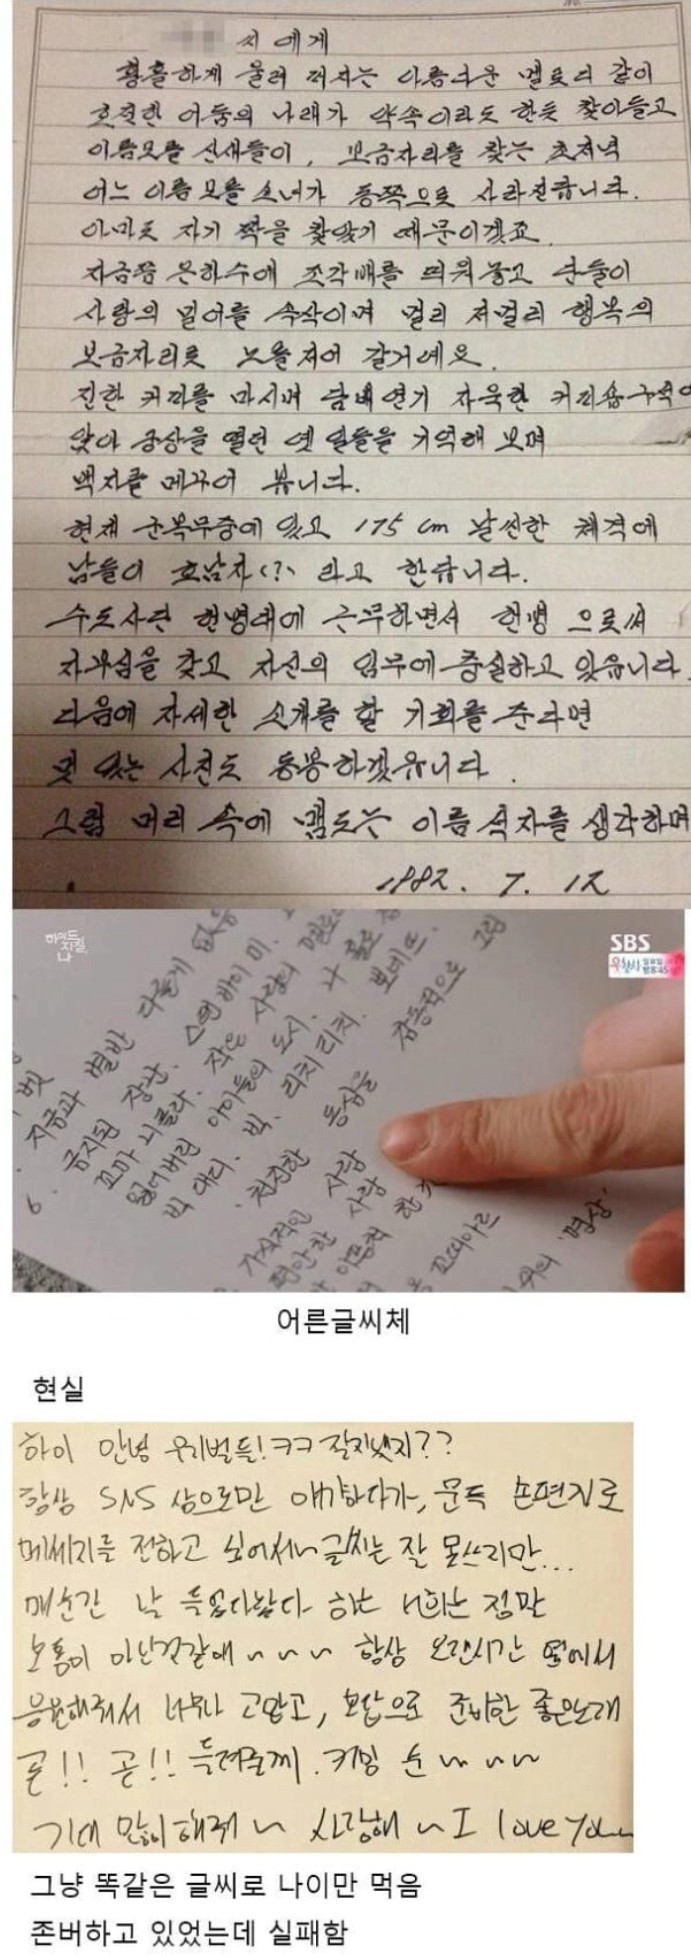 씨 에게
황홀하게 울려 퍼지는 아름다운 멜로디 같이
호젓한 어둠의 나래가 약속이라도 한듯 찾아들고
이름모를 산새들이, 보금자리를 찾는 초저녁
어느 이름 모를 소녀가 동쪽으로 사라진답니다.
아마도 자기 짝을 찾았기 때문이겠죠
지금쯤 은하수에 조각배를 띄워놓고 단둘이
사랑의 밀어를 속삭이며 멀리 저멀리 행복의
보금자리로 노를저어 갈거예요.
진한 커피를 마시며 담배연기 자욱한 커피숍구석에
앉아 공상을 떨던 옛 일들을 기억해 보며
백지를 메꾸어 봅니다.
현재 군복무중에 있고 175 cm 날씬한 체격에
남들이 호남자(?) 라고 한답니다.
수도사단 헌병대에 근무하면서 헌병 으로써
자부심을 갖고 자신의 임무에 충실하고 있읍니다.
다음에 자세한 소개를 할 기회를 준다면
멋 있는 사진도 동봉하겠읍니다.
그럼 머리 속에 맴도는 이름 석자를 생각하며
1982. 7. 12
하이드 지킬, 나
SBS
벳
지금과 별반 다를게 없음
6. 금지된 장난. 스탠 바이 미.
꼬마 니콜라. 작은 사랑의 멜로디
잃어버린 아이들의 도시. 나 홀로 집
빅 대디. 빅. 리치 리치. 뽀네뜨.
천진한 동심을 감동적으로 그림
가식적인 사랑
편안한 사랑
꼬띠아르
위의 '명상'
어른글씨체
현실
하이 안녕 우리벌들! ㅋㅋ 잘지냈지??
항상 SNS 상으로만 얘기하다가, 문득 손편지로
메세지를 전하고 싶어서~ 글씨는 잘 못쓰지만...
매순간 날 들었다놨다 하는 너희는 정말
보통이 아닌것같애 ~ ~ ~ 항상 오랜시간 옆에서
응원해줘서 너무나 고맙고, 보답으로 준비한 좋은노래
곧!! 곧!! 들려줄께. 커밍 순 ~ ~ ~
기대 많이해줘 ~ 사랑해 ~ I love you~
그냥 똑같은 글씨로 나이만 먹음
존버하고 있었는데 실패함